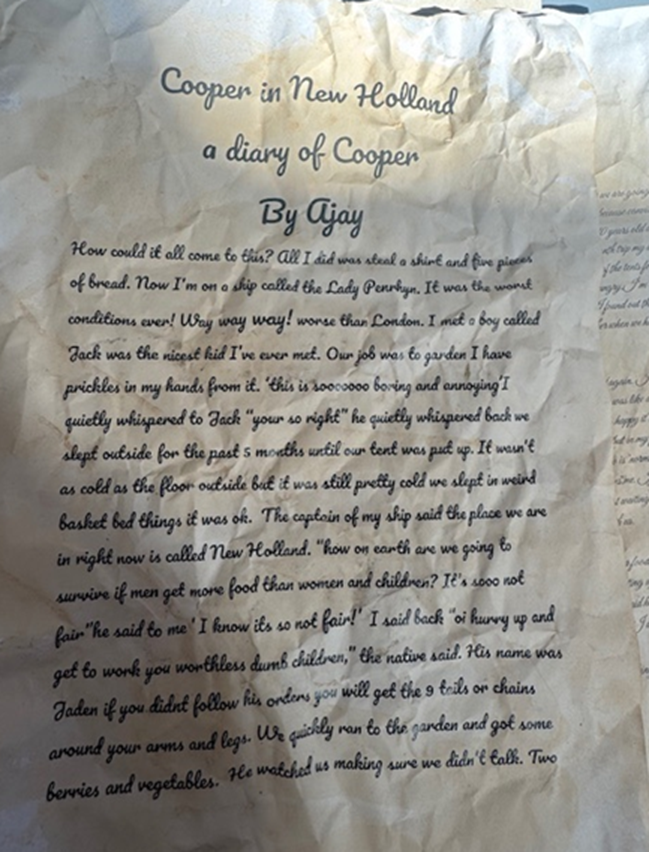 Cooper in New Holland
a diary of Cooper
By Ajay
How could it all come to this? All I did was steal a shirt and five pieces
of bread. Now I'm on a ship called the Lady Penrhyn. It was the worst
conditions ever! Way way way! worse than London. I met a boy called
Jack was the nicest kid I've ever met. Our job was to garden I have
prickles in my hands from it. 'this is sooooooo boring and annoying'I
quietly whispered to Jack "your so right" he quietly whispered back we
slept outside for the past 5 months until our tent was put up. It wasn't
as cold as the floor outside but it was still pretty cold we slept in weird
basket bed things it was ok. The captain of my ship said the place we are
in right now is called New Holland. "how on earth are we going to
survive if men get more food than women and children? It's sooo not
fair"he said to me ' I know its so not fair!' I said back "oi hurry up and
get to work you worthless dumb children," the native said. His name was
Jaden if you didnt follow his orders you will get the 9 tails or chains
around your arms and legs. We quickly ran to the garden and got some
berries and vegetables. He watched us making sure we didn't talk. Two